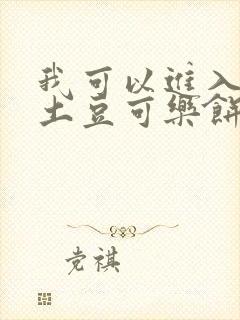 我可以進入
土豆可樂餅
党祺